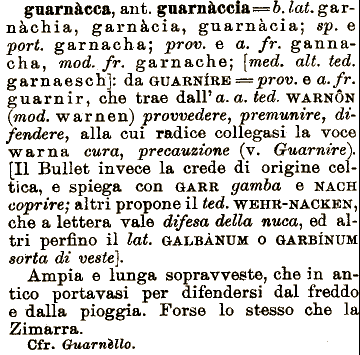 guarnàcca, ant. guarnàccia=b. lat. gar-
nàchia, garnàcia, guarnàcia; sp. e
port. garnacha; prov. e a. fr. ganna-
cha, mod. fr. garnache; [med. alt. ted.
garnaesch]: da GUARNÍRE=prov. e a. fr.
guarnir, che trae dall'a. a. ted. WARNÔN
(mod. warnen) provvedere, premunire, di-
fendere, alla cui radice collegasi la voce
warna cura, precauzione (v. Guarnire).
[Il Bullet invece la crede di origine cel-
tica, e spiega con GARR gamba e NACH
coprire; altri propone il ted. WEHR-NACKEN,
che a lettera vale difesa della nuca, ed al-
tri perfino il lat. GALBÀNUM O GARBÍNUM
sorta di veste].
Ampia e lunga sopravveste, che in an-
tico portavasi per difendersi dal freddo
e dalla pioggia. Forse lo stesso che la
Zimarra.
Cfr. Guarnèllo.